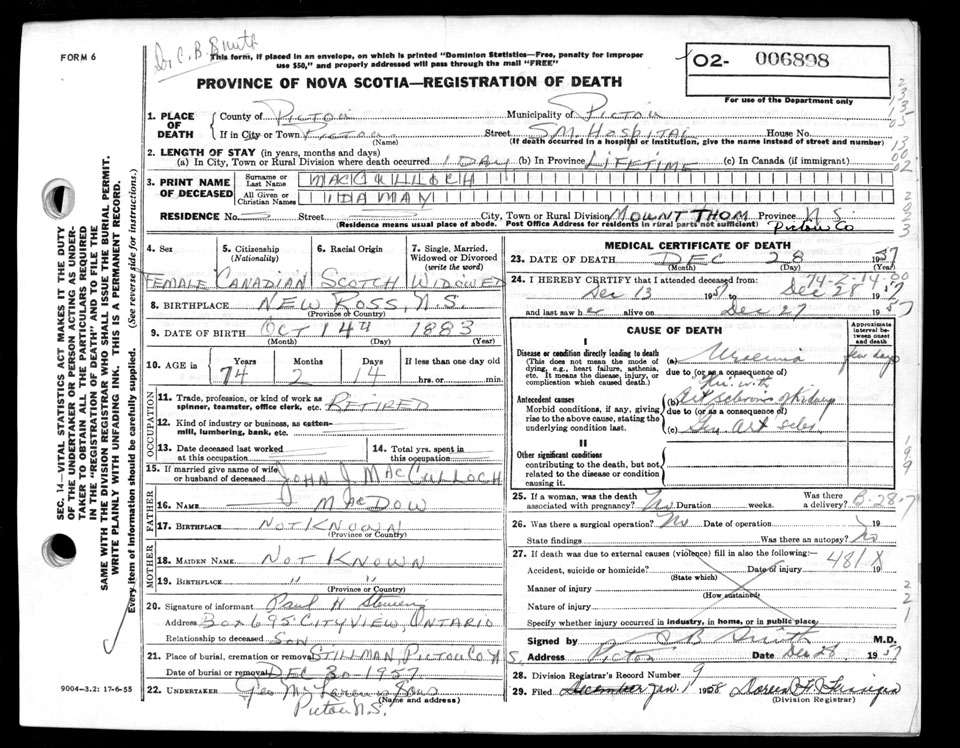 FORM 6
Dr C. B. Smith
This form, if placed in an envelope, on which is printed "Dominion Statistics—Free, penalty for improper
use $50," and properly addressed will pass through the mail "FREE"
02- 006898
For use of the Department only
PROVINCE OF NOVA SCOTIA—REGISTRATION OF DEATH
1. PLACE OF DEATH
County of Pictou Municipality of Pictou
If in City or Town Pictou Street S.M. Hospital House No.
(Name) (If death occurred in a hospital or institution, give the name instead of street and number)
2. LENGTH OF STAY (in years, months and days)
(a) In City, Town or Rural Division where death occurred 1 DAY (b) In Province LIFETIME (c) In Canada (if immigrant)
3. PRINT NAME OF DECEASED
Surname or Last Name MACCULLOCH
All Given or Christian Names IDA MAY
RESIDENCE No. Street City, Town or Rural Division MOUNT THOM Province N.S.
(Residence means usual place of abode. Post Office Address for residents in rural parts not sufficient) Pictou Co
4. Sex FEMALE
5. Citizenship (Nationality) CANADIAN
6. Racial Origin SCOTCH
7. Single, Married, Widowed or Divorced (write the word) WIDOWED
8. BIRTHPLACE NEW ROSS, N.S.
(Province or Country)
9. DATE OF BIRTH OCT 14TH 1883
(Month) (Day) (Year)
10. AGE in Years Months Days If less than one day old
74 2 14 hrs. or min.
OCCUPATION
11. Trade, profession, or kind of work as spinner, teamster, office clerk, etc. RETIRED
12. Kind of industry or business, as cotton-mill, lumbering, bank, etc.
13. Date deceased last worked at this occupation
14. Total yrs. spent in this occupation
15. If married give name of wife or husband of deceased JOHN J. MACCULLOCH
FATHER
16. NAME MACDOW
17. BIRTHPLACE NOT KNOWN
(Province or Country)
MOTHER
18. MAIDEN NAME NOT KNOWN
19. BIRTHPLACE " "
(Province or Country)
20. Signature of informant Paul H
Address BOX 695 CITYVIEW, ONTARIO
Relationship to deceased SON
21. Place of burial, cremation or removal STILLMAN, PICTOU CO N.S.
Date of burial or removal DEC 30 1957
22. UNDERTAKER Geo McLaren & Sons
(Name and address)
Pictou N.S.
MEDICAL CERTIFICATE OF DEATH
23. DATE OF DEATH DEC 28 1957
(Month) (Day) (Year)
74-2-14-00
24. I HEREBY CERTIFY that I attended deceased from:
Dec 13 1957 to Dec 28 1957
and last saw her alive on Dec 27 1957
CAUSE OF DEATH
Approximate interval between onset and death
I
Disease or condition directly leading to death
(This does not mean the mode of dying, e.g., heart failure, asthenia, etc. It means the disease, injury, or complication which caused death.)
(a) Uraemia few days
due to (or as a consequence of)
Antecedent causes
Morbid conditions, if any, giving rise to the above cause, stating the underlying condition last.
(b) Art sclerosis of kidney
due to (or as a consequence of)
(c) Gen. Art scler
II
Other significant conditions
contributing to the death, but not related to the disease or condition causing it.
25. If a woman, was the death associated with pregnancy? No Duration weeks. Was there a delivery?
B-28-7
26. Was there a surgical operation? No Date of operation 19
State findings Was there an autopsy? No
27. If death was due to external causes (violence) fill in also the following:—
481X
Accident, suicide or homicide? Date of injury 19
(State which)
Manner of injury
(How sustained)
Nature of injury
Specify whether injury occurred in industry, in home, or in public place
Signed by C B Smith M.D.
Address Pictou Date Dec 28 1957
28. Division Registrar's Record Number 9
29. Filed December Jan. 1 1958
(Division Registrar)
SEC. 14—VITAL STATISTICS ACT MAKES IT THE DUTY
OF THE UNDERTAKER OR PERSON ACTING AS UNDER-
TAKER TO OBTAIN ALL THE PARTICULARS REQUIRED
IN THE "REGISTRATION OF DEATH" AND TO FILE THE
SAME WITH THE DIVISION REGISTRAR WHO SHALL ISSUE THE BURIAL PERMIT.
WRITE PLAINLY WITH UNFADING INK. THIS IS A PERMANENT RECORD.
Every item of information should be carefully supplied. (See reverse side for instructions.)
9004-3.2: 17-6-55